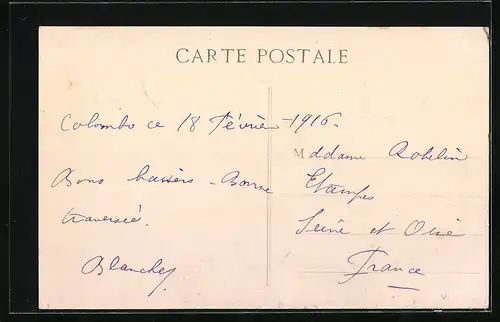 CARTE POSTALE
Colombo ce 18 Février 1916.
Bons baisers - Bonne
traversée.
Blanche
Maddame Robelin
Etampes
Seine et Oise
France